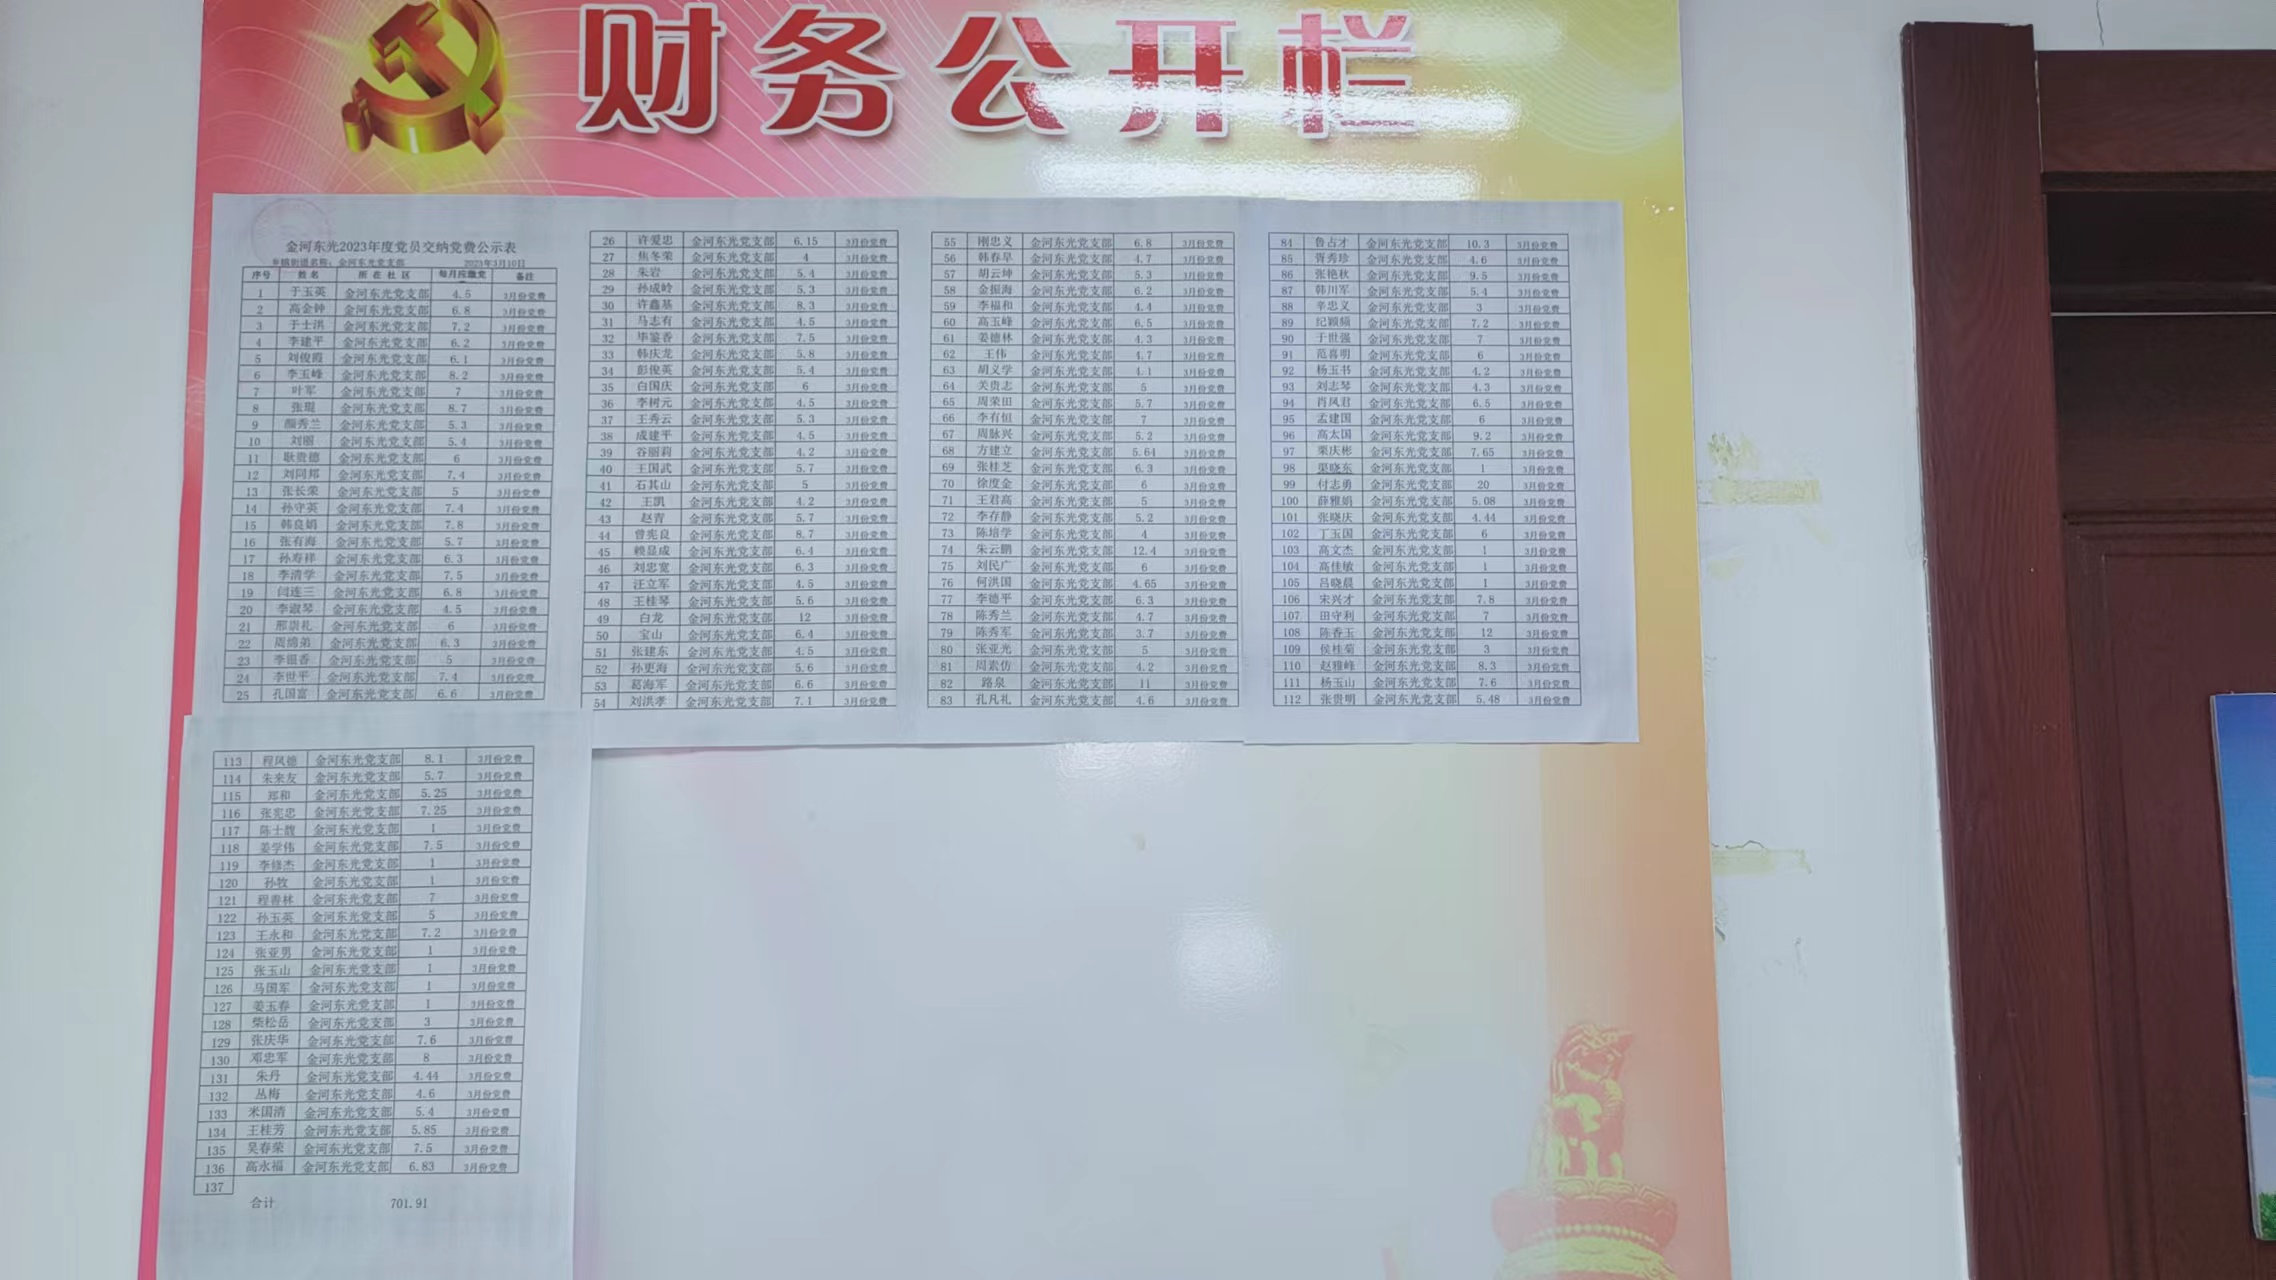 财务公开栏
金河东光2023年度党员交纳党费公示表
乡镇街道名称：金河东光党支部 2023年3月10日
序号 姓名 所在社区 每月应缴党 备注
1 于玉英 金河东光党支部 4.5 3月份党费
2 高金钟 金河东光党支部 6.8 3月份党费
3 于士洪 金河东光党支部 7.2 3月份党费
4 李建平 金河东光党支部 6.2 3月份党费
5 刘俊霞 金河东光党支部 6.1 3月份党费
6 李玉峰 金河东光党支部 8.2 3月份党费
7 叶军 金河东光党支部 7 3月份党费
8 张琨 金河东光党支部 8.7 3月份党费
9 颜秀兰 金河东光党支部 5.3 3月份党费
10 刘丽 金河东光党支部 5.4 3月份党费
11 耿贵德 金河东光党支部 6 3月份党费
12 刘同邦 金河东光党支部 7.4 3月份党费
13 张长荣 金河东光党支部 5 3月份党费
14 孙守英 金河东光党支部 7.4 3月份党费
15 韩良娟 金河东光党支部 7.8 3月份党费
16 张有海 金河东光党支部 5.7 3月份党费
17 孙寿祥 金河东光党支部 6.3 3月份党费
18 李清学 金河东光党支部 7.5 3月份党费
19 闫连三 金河东光党支部 6.8 3月份党费
20 李淑琴 金河东光党支部 4.5 3月份党费
21 邢崇礼 金河东光党支部 6 3月份党费
22 周绵弟 金河东光党支部 6.3 3月份党费
23 李银香 金河东光党支部 5 3月份党费
24 李世平 金河东光党支部 7.4 3月份党费
25 孔国富 金河东光党支部 6.6 3月份党费
26 许爱忠 金河东光党支部 6.15 3月份党费
27 焦冬荣 金河东光党支部 4 3月份党费
28 朱岩 金河东光党支部 5.4 3月份党费
29 孙成岭 金河东光党支部 5.3 3月份党费
30 许鑫基 金河东光党支部 8.3 3月份党费
31 马志有 金河东光党支部 4.5 3月份党费
32 毕鉴香 金河东光党支部 7.5 3月份党费
33 韩庆龙 金河东光党支部 5.8 3月份党费
34 彭俊英 金河东光党支部 5.4 3月份党费
35 白国庆 金河东光党支部 6 3月份党费
36 李树元 金河东光党支部 4.5 3月份党费
37 王秀云 金河东光党支部 5.3 3月份党费
38 成建平 金河东光党支部 4.5 3月份党费
39 谷丽莉 金河东光党支部 4.2 3月份党费
40 王国武 金河东光党支部 5.7 3月份党费
41 石其山 金河东光党支部 5 3月份党费
42 王凯 金河东光党支部 4.2 3月份党费
43 赵青 金河东光党支部 5.7 3月份党费
44 曾宪良 金河东光党支部 8.7 3月份党费
45 赖显成 金河东光党支部 6.4 3月份党费
46 刘忠宽 金河东光党支部 6.3 3月份党费
47 汪立军 金河东光党支部 4.5 3月份党费
48 王桂琴 金河东光党支部 5.6 3月份党费
49 白龙 金河东光党支部 12 3月份党费
50 宝山 金河东光党支部 6.4 3月份党费
51 张建东 金河东光党支部 4.5 3月份党费
52 孙更海 金河东光党支部 5.6 3月份党费
53 葛海军 金河东光党支部 6.6 3月份党费
54 刘洪孝 金河东光党支部 7.1 3月份党费
55 刚忠义 金河东光党支部 6.8 3月份党费
56 韩春早 金河东光党支部 4.7 3月份党费
57 胡云坤 金河东光党支部 5.3 3月份党费
58 金振海 金河东光党支部 6.2 3月份党费
59 李福和 金河东光党支部 4.4 3月份党费
60 高玉峰 金河东光党支部 6.5 3月份党费
61 姜德林 金河东光党支部 4.3 3月份党费
62 王伟 金河东光党支部 4.7 3月份党费
63 胡义学 金河东光党支部 4.1 3月份党费
64 关贵志 金河东光党支部 5 3月份党费
65 周荣田 金河东光党支部 5.7 3月份党费
66 李有恒 金河东光党支部 7 3月份党费
67 周脉兴 金河东光党支部 5.2 3月份党费
68 方建立 金河东光党支部 5.64 3月份党费
69 张桂芝 金河东光党支部 6.3 3月份党费
70 徐度金 金河东光党支部 6 3月份党费
71 王君高 金河东光党支部 5 3月份党费
72 李存静 金河东光党支部 5.2 3月份党费
73 陈培学 金河东光党支部 4 3月份党费
74 朱云鹏 金河东光党支部 12.4 3月份党费
75 刘民广 金河东光党支部 6 3月份党费
76 何洪国 金河东光党支部 4.65 3月份党费
77 李德平 金河东光党支部 6.3 3月份党费
78 陈秀兰 金河东光党支部 4.7 3月份党费
79 陈秀军 金河东光党支部 3.7 3月份党费
80 张亚光 金河东光党支部 5 3月份党费
81 周素仿 金河东光党支部 4.2 3月份党费
82 路泉 金河东光党支部 11 3月份党费
83 孔凡礼 金河东光党支部 4.6 3月份党费
84 鲁占才 金河东光党支部 10.3 3月份党费
85 胥秀珍 金河东光党支部 4.6 3月份党费
86 张艳秋 金河东光党支部 9.5 3月份党费
87 韩川军 金河东光党支部 5.4 3月份党费
88 辛忠义 金河东光党支部 3 3月份党费
89 纪颖频 金河东光党支部 7.2 3月份党费
90 于世强 金河东光党支部 7 3月份党费
91 范喜明 金河东光党支部 6 3月份党费
92 杨玉书 金河东光党支部 4.2 3月份党费
93 刘志琴 金河东光党支部 4.3 3月份党费
94 肖凤君 金河东光党支部 6.5 3月份党费
95 孟建国 金河东光党支部 6 3月份党费
96 高太国 金河东光党支部 9.2 3月份党费
97 栗庆彬 金河东光党支部 7.65 3月份党费
98 渠晓东 金河东光党支部 1 3月份党费
99 付志勇 金河东光党支部 20 3月份党费
100 薛雅娟 金河东光党支部 5.08 3月份党费
101 张晓庆 金河东光党支部 4.44 3月份党费
102 丁玉国 金河东光党支部 6 3月份党费
103 高文杰 金河东光党支部 1 3月份党费
104 高佳敏 金河东光党支部 1 3月份党费
105 吕晓晨 金河东光党支部 1 3月份党费
106 宋兴才 金河东光党支部 7.8 3月份党费
107 田守利 金河东光党支部 7 3月份党费
108 陈香玉 金河东光党支部 12 3月份党费
109 侯桂菊 金河东光党支部 3 3月份党费
110 赵雅峰 金河东光党支部 8.3 3月份党费
111 杨玉山 金河东光党支部 7.6 3月份党费
112 张贵明 金河东光党支部 5.48 3月份党费
113 程凤德 金河东光党支部 8.1 3月份党费
114 朱来友 金河东光党支部 5.7 3月份党费
115 郑和 金河东光党支部 5.25 3月份党费
116 张宪忠 金河东光党支部 7.25 3月份党费
117 陈士馥 金河东光党支部 1 3月份党费
118 姜学伟 金河东光党支部 7.5 3月份党费
119 李修杰 金河东光党支部 1 3月份党费
120 孙牧 金河东光党支部 1 3月份党费
121 程善林 金河东光党支部 7 3月份党费
122 孙玉英 金河东光党支部 5 3月份党费
123 王永和 金河东光党支部 7.2 3月份党费
124 张亚男 金河东光党支部 1 3月份党费
125 张玉山 金河东光党支部 1 3月份党费
126 马国军 金河东光党支部 1 3月份党费
127 姜玉春 金河东光党支部 1 3月份党费
128 柴松岳 金河东光党支部 3 3月份党费
129 张庆华 金河东光党支部 7.6 3月份党费
130 邓忠军 金河东光党支部 8 3月份党费
131 朱丹 金河东光党支部 4.44 3月份党费
132 丛梅 金河东光党支部 4.6 3月份党费
133 米国清 金河东光党支部 5.4 3月份党费
134 王桂芳 金河东光党支部 5.85 3月份党费
135 吴春荣 金河东光党支部 7.5 3月份党费
136 高永福 金河东光党支部 6.83 3月份党费
137
合计 701.91